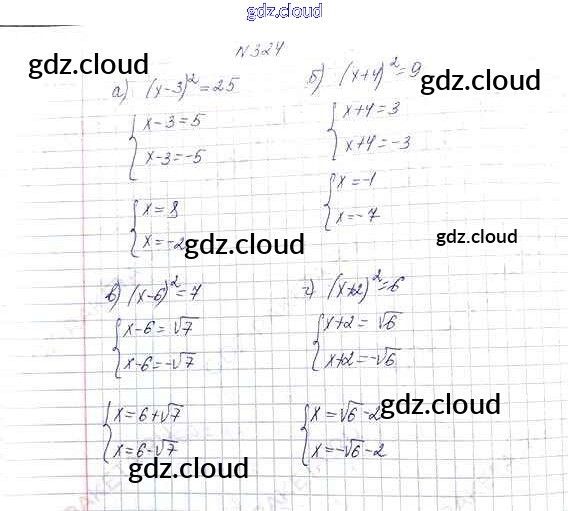 gdz.cloud
N 324
gdz.cloud
а) (x-3)²=25
{ x-3=5
x-3=-5
{ x=8
x=-2
gdz.cloud
б) (x+4)²=9
{ x+4=3
x+4=-3
{ x=-1
x=-7
gdz.cloud
в) (x-6)²=7
{ x-6=√7
x-6=-√7
{ x=6+√7
x=6-√7
gdz.cloud
г) (x+2)²=6
{ x+2=√6
x+2=-√6
gdz.cloud
{ x=√6-2
x=-√6-2